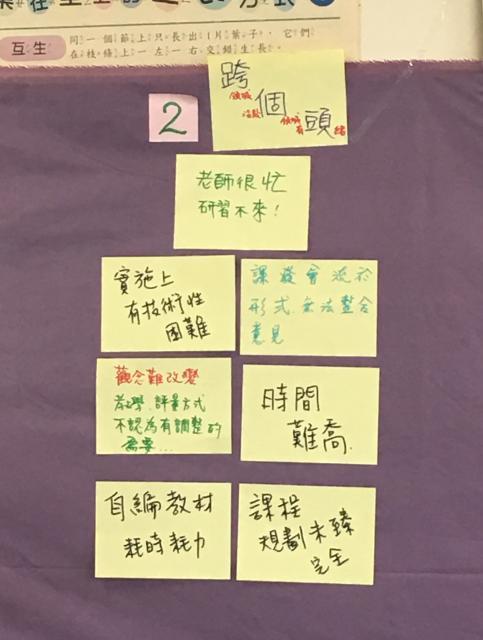 互生
同一個節上只長出1片葉子，它們
在枝條上一左一右交錯生長。
2
跨領域
個沒啥
頭領域有緒
老師很忙
研習不來！
實施上
有技術性
困難
課發會流於
形式.無法整合
意見
觀念難改變
教學.評量方式
不認為有調整的
需要...
時間
難喬.
自編教材
耗時耗力
課程
規劃未臻
完全